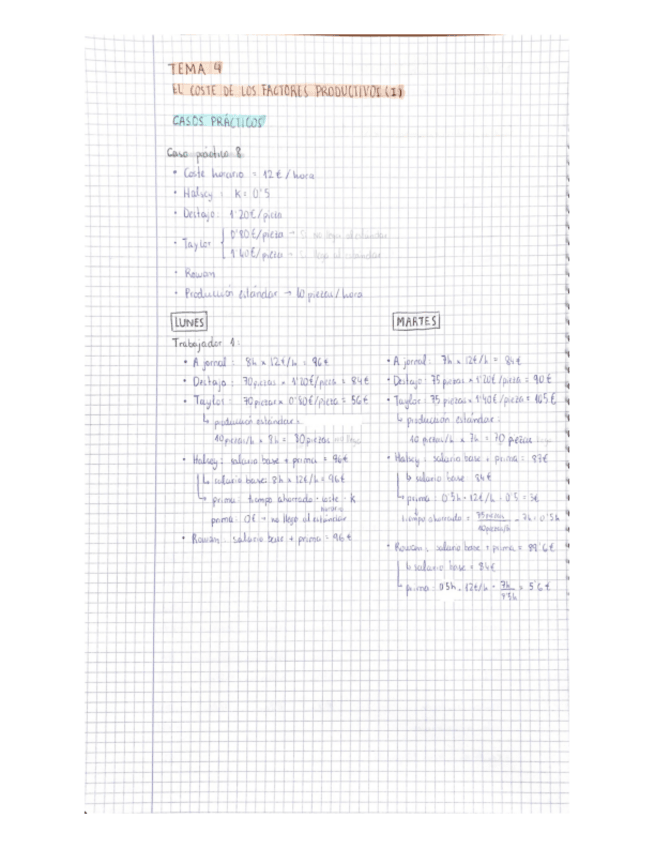 TEMA 4
EL COSTE DE LOS FACTORES PRODUCTIVOS (I)
CASOS PRÁCTICOS
Caso práctico 8
• Coste horario = 12€/hora
• Halsey: K = 0'5
• Destajo: 1'20€/pieza
• Taylor { 0'80€/pieza → Si no llega al estándar
1'40€/pieza → Si llega al estándar
• Rowan
• Producción estándar → 10 piezas/hora
LUNES
Trabajador 1:
• A jornal: 8h x 12€/h = 96€
• Destajo: 70 piezas x 1'20€/pieza = 84€
• Taylor: 70 piezas x 0'80€/pieza = 56€
↳ producción estándar:
10 piezas/h x 8h = 80 piezas no llega
• Halsey: salario base + prima = 96€
↳ salario base: 8h x 12€/h = 96€
↳ prima: tiempo ahorrado · coste horario · K
prima: 0€ → no llega al estándar
• Rowan: salario base + prima = 96€
MARTES
• A jornal: 7h x 12€/h = 84€
• Destajo: 75 piezas x 1'20€/pieza = 90€
• Taylor: 75 piezas x 1'40€/pieza = 105€
↳ producción estándar:
10 piezas/h x 7h = 70 piezas
• Halsey: salario base + prima: 87€
↳ salario base: 84€
↳ prima: 0'5h · 12€/h · 0'5 = 3€
tiempo ahorrado = 75 piezas / 10 piezas/h - 7h = 0'5h
• Rowan: salario base + prima = 89'6€
↳ salario base = 84€
↳ prima: 0'5h · 12€/h · 7h / 7'5h = 5'6€